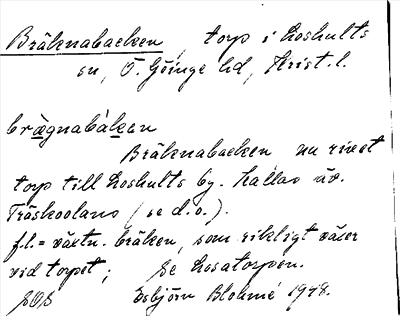 Bräknabacken, torp i Loshults
sn, Ö. Göinge hd, Krist. l.
brägnabákan
Bräknabacken nu rivet
torp till Loshults by. Kallas äv.
Träskoolans (se d.o.).
f.l. = växtn. bräken, som rikligt växer
vid torpet; Se Losatorpen.
Esbjörn Blohmé 1948.